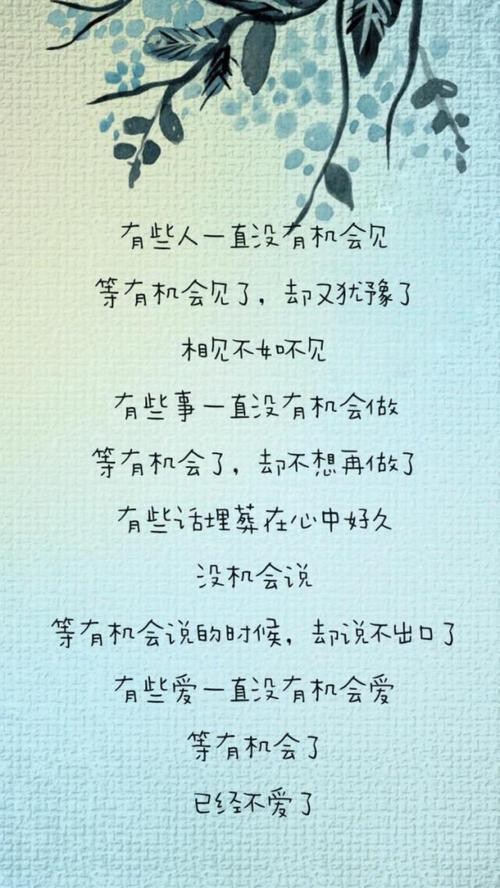 有些人一直没有机会见
等有机会见了，却又犹豫了
相见不如不见
有些事一直没有机会做
等有机会了，却不想再做了
有些话埋葬在心中好久
没机会说
等有机会说的时候，却说不出口了
有些爱一直没有机会爱
等有机会了
已经不爱了